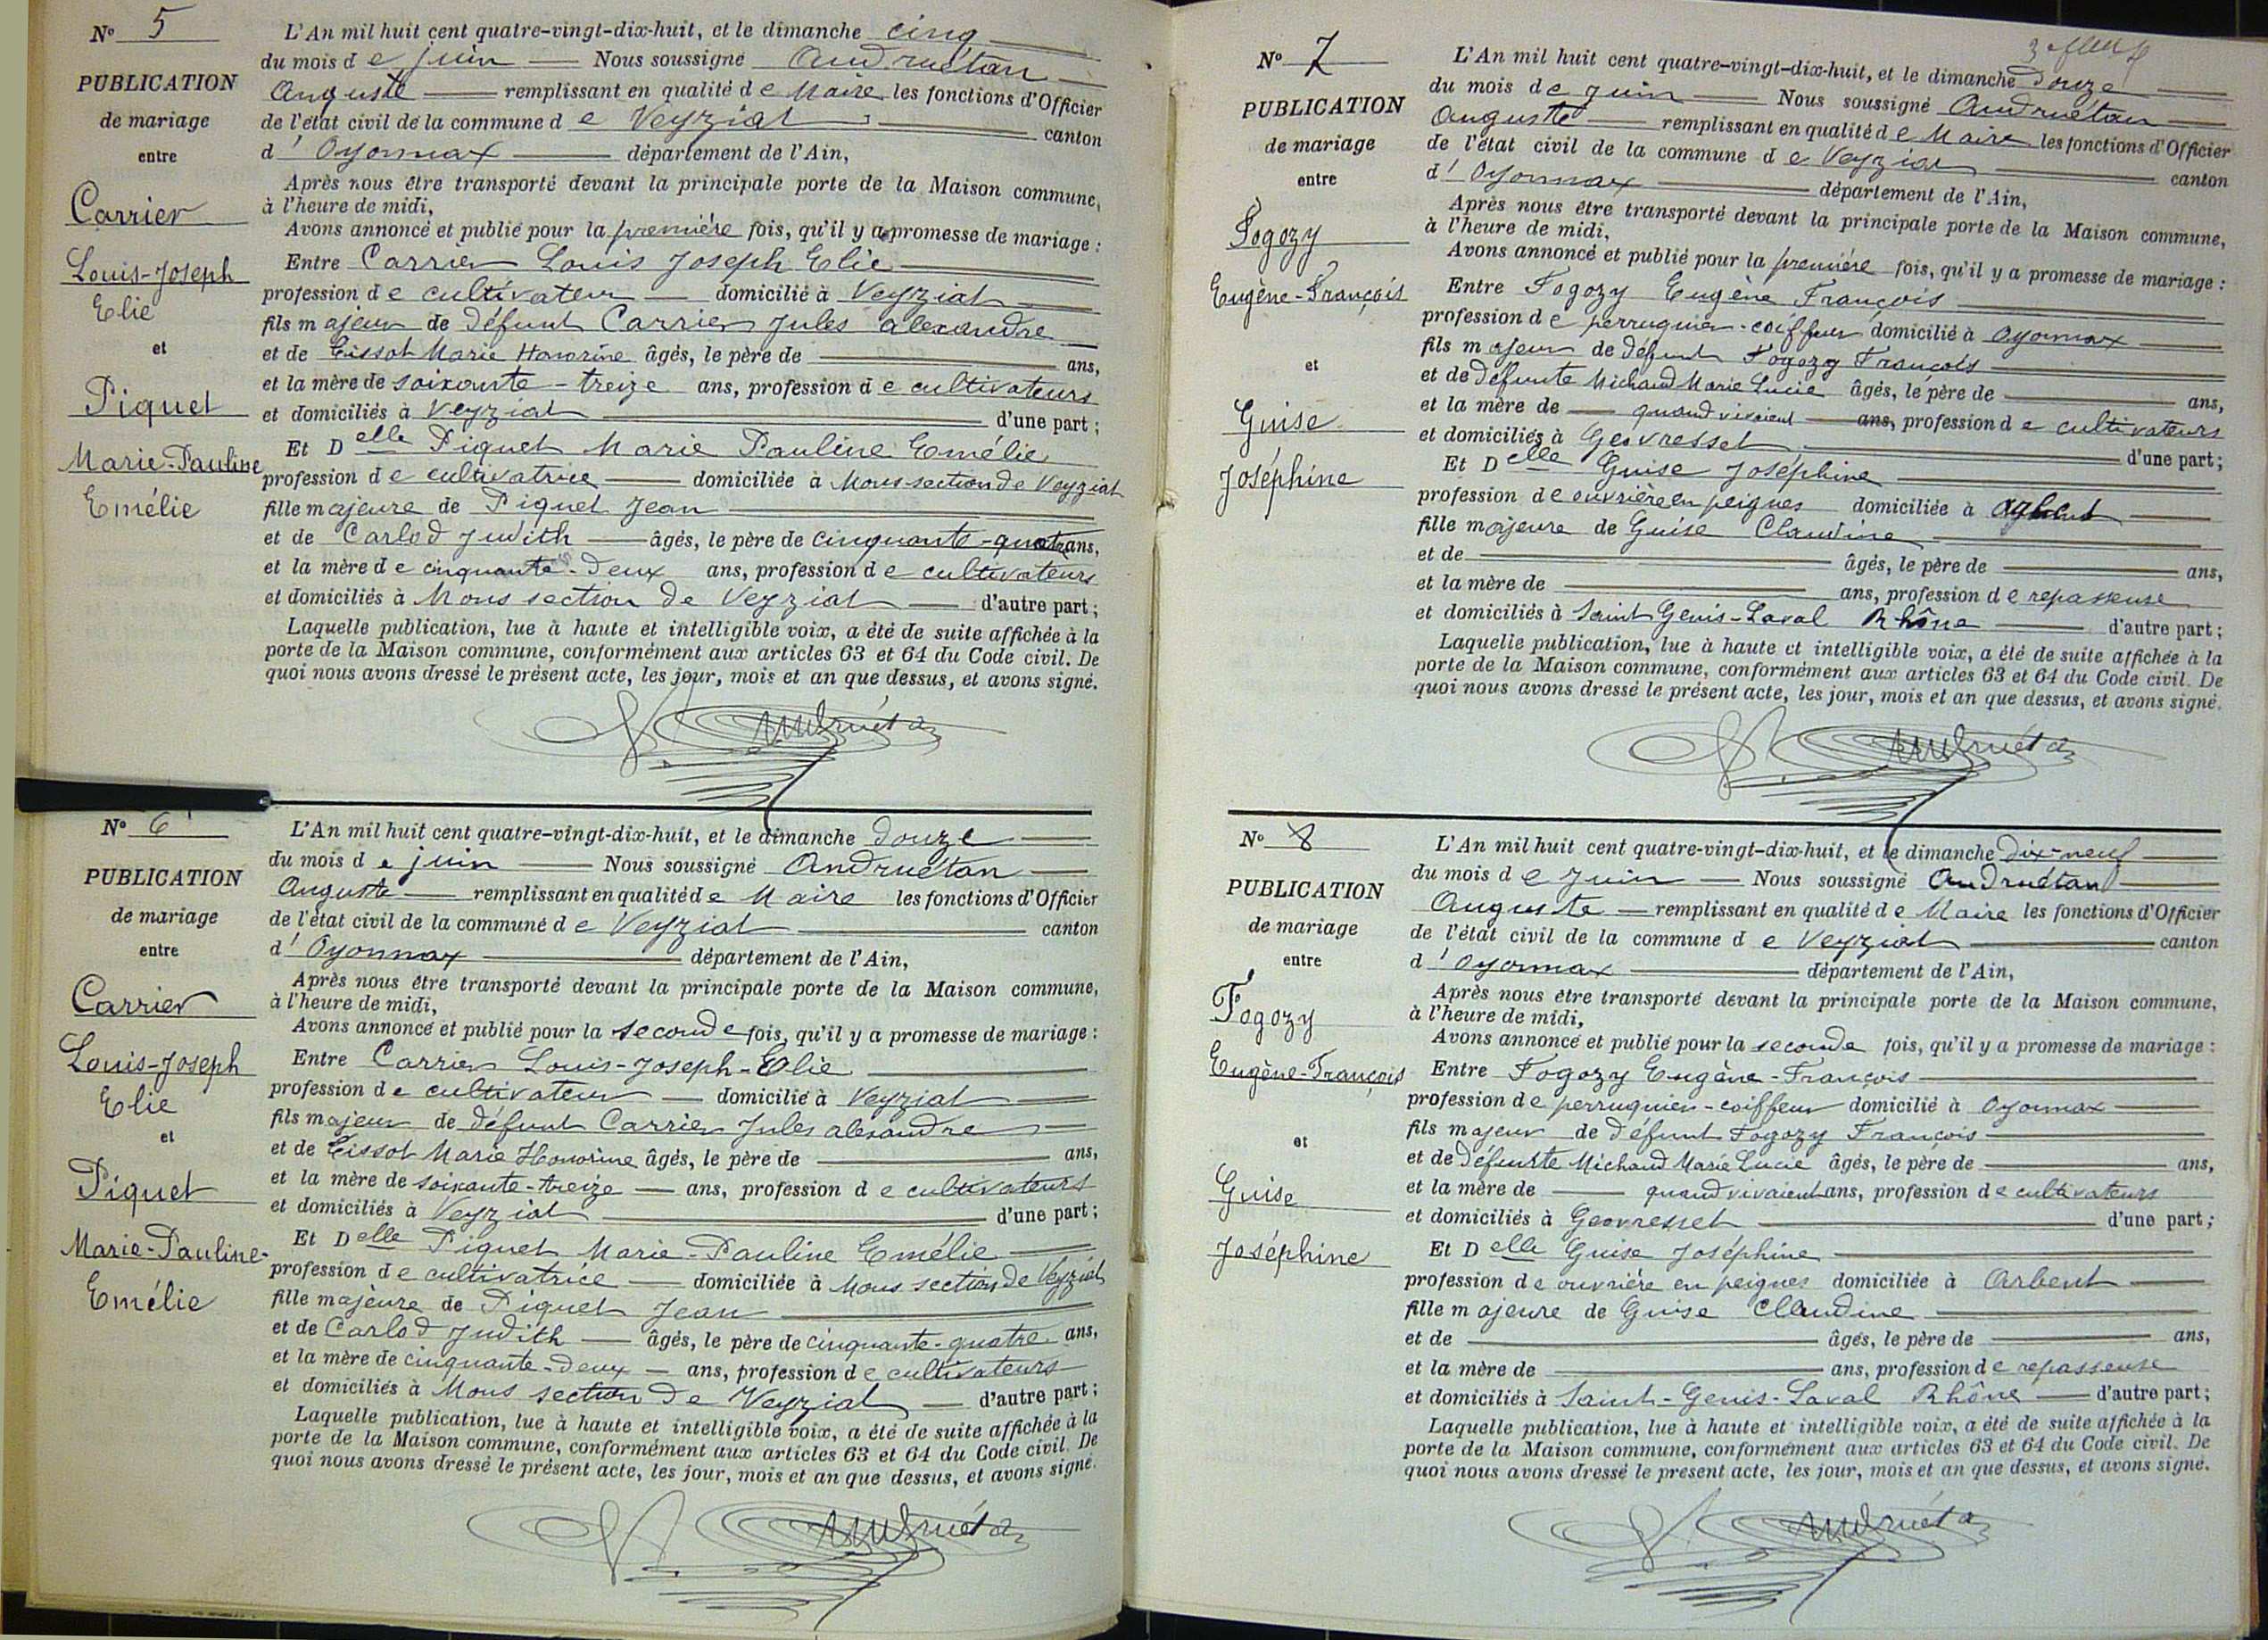 N° 5
PUBLICATION
de mariage
entre
Carrier
Louis-Joseph
Elie
et
Piquet
Marie-Pauline
Emélie
L'An mil huit cent quatre-vingt-dix-huit, et le dimanche cinq
du mois de juin Nous soussigné Andruétan
Auguste remplissant en qualité de Maire les fonctions d'Officier
de l'état civil de la commune de Veyziat canton
d'Oyonnax département de l'Ain,
Après nous être transporté devant la principale porte de la Maison commune,
à l'heure de midi,
Avons annoncé et publié pour la première fois, qu'il y a promesse de mariage :
Entre Carrier Louis Joseph Elie
profession de cultivateur domicilié à Veyziat
fils majeur de défunt Carrier Jules alexandre
et de Cissot Marie Honorine âgés, le père de ans,
et la mère de soixante-treize ans, profession de cultivateurs
et domiciliés à Veyziat d'une part ;
Et Delle Piquet Marie Pauline Emélie
profession de cultivatrice domiciliée à Mons section de Veyziat
fille majeure de Piquet Jean
et de Carlod Judith âgés, le père de cinquante-quatre ans,
et la mère de cinquante-deux ans, profession de cultivateurs
et domiciliés à Mons section de Veyziat d'autre part ;
Laquelle publication, lue à haute et intelligible voix, a été de suite affichée à la
porte de la Maison commune, conformément aux articles 63 et 64 du Code civil. De
quoi nous avons dressé le présent acte, les jour, mois et an que dessus, et avons signé.
Andruétan
N° 6
PUBLICATION
de mariage
entre
Carrier
Louis-Joseph
Elie
et
Piquet
Marie-Pauline-
Emélie
L'An mil huit cent quatre-vingt-dix-huit, et le dimanche douze
du mois de juin Nous soussigné Andruétan
Auguste remplissant en qualité de Maire les fonctions d'Officier
de l'état civil de la commune de Veyziat canton
d'Oyonnax département de l'Ain,
Après nous être transporté devant la principale porte de la Maison commune,
à l'heure de midi,
Avons annoncé et publié pour la seconde fois, qu'il y a promesse de mariage :
Entre Carrier Louis-Joseph-Elie
profession de cultivateur domicilié à Veyziat
fils majeur de défunt Carrier Jules alexandre
et de Cissot Marie Honorine âgés, le père de ans,
et la mère de soixante-treize ans, profession de cultivateurs
et domiciliés à Veyziat d'une part ;
Et Delle Piquet Marie-Pauline Emélie
profession de cultivatrice domiciliée à Mons section de Veyziat
fille majeure de Piquet Jean
et de Carlod Judith âgés, le père de cinquante-quatre ans,
et la mère de cinquante-deux ans, profession de cultivateurs
et domiciliés à Mons section de Veyziat d'autre part ;
Laquelle publication, lue à haute et intelligible voix, a été de suite affichée à la
porte de la Maison commune, conformément aux articles 63 et 64 du Code civil. De
quoi nous avons dressé le présent acte, les jour, mois et an que dessus, et avons signé.
Andruétan
N° 7
PUBLICATION
de mariage
entre
Fogozy
Eugène-François
et
Guise
Joséphine
L'An mil huit cent quatre-vingt-dix-huit, et le dimanche douze
du mois de Juin Nous soussigné Andruétan
Auguste remplissant en qualité de Maire les fonctions d'Officier
de l'état civil de la commune de Veyziat canton
d'Oyonnax département de l'Ain,
Après nous être transporté devant la principale porte de la Maison commune,
à l'heure de midi,
Avons annoncé et publié pour la première fois, qu'il y a promesse de mariage :
Entre Fogozy Eugène François
profession de perruquier-coiffeur domicilié à Oyonnax
fils majeur de défunt Fogozy François
et de défunte Michaud Marie Lucie âgés, le père de ans,
et la mère de quand vivaient ans, profession de cultivateurs
et domiciliés à Geovresset d'une part ;
Et Delle Guise Joséphine
profession de ouvrière en peignes domiciliée à
fille majeure de Guise Claudine
et de âgés, le père de ans,
et la mère de ans, profession de repasseuse
et domiciliés à Saint Genis-Laval Rhône d'autre part ;
Laquelle publication, lue à haute et intelligible voix, a été de suite affichée à la
porte de la Maison commune, conformément aux articles 63 et 64 du Code civil. De
quoi nous avons dressé le présent acte, les jour, mois et an que dessus, et avons signé.
Andruétan
N° 8
PUBLICATION
de mariage
entre
Fogozy
Eugène-François
et
Guise
Joséphine
L'An mil huit cent quatre-vingt-dix-huit, et le dimanche dix-neuf
du mois de Juin Nous soussigné Andruétan
Auguste remplissant en qualité de Maire les fonctions d'Officier
de l'état civil de la commune de Veyziat canton
d'Oyonnax département de l'Ain,
Après nous être transporté devant la principale porte de la Maison commune,
à l'heure de midi,
Avons annoncé et publié pour la seconde fois, qu'il y a promesse de mariage :
Entre Fogozy Eugène-François
profession de perruquier-coiffeur domicilié à Oyonnax
fils majeur de défunt Fogozy François
et de défunte Michaud Marie Lucie âgés, le père de ans,
et la mère de quand vivaient ans, profession de cultivateurs
et domiciliés à Geovresset d'une part ;
Et Delle Guise Joséphine
profession de ouvrière en peignes domiciliée à Arbent
fille majeure de Guise Claudine
et de âgés, le père de ans,
et la mère de ans, profession de repasseuse
et domiciliés à Saint-Genis-Laval Rhône d'autre part ;
Laquelle publication, lue à haute et intelligible voix, a été de suite affichée à la
porte de la Maison commune, conformément aux articles 63 et 64 du Code civil. De
quoi nous avons dressé le présent acte, les jour, mois et an que dessus, et avons signé.
Andruétan